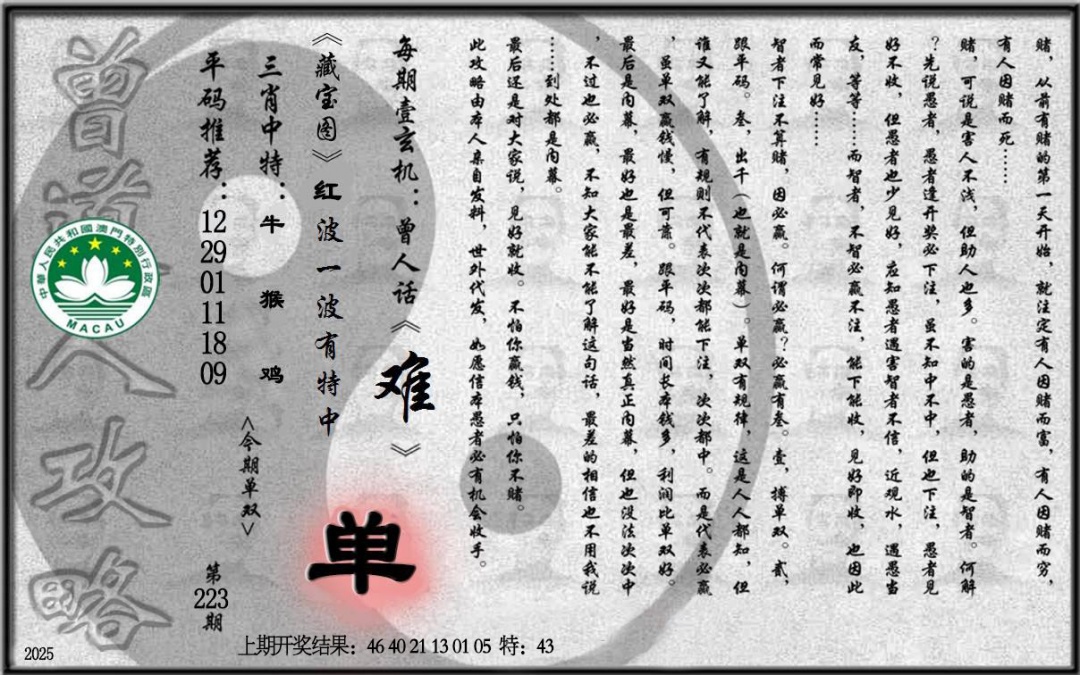 赌，从前有赌的第一天开始，就注定有人因赌而富，有人因赌而穷，
有人因赌而死……
赌，可说是害人不浅，但助人也多。害的是愚者，助的是智者。何解
？先说愚者，愚者逢开奖必下注，虽不知中不中，但也下注，愚者见
好不收，但愚者也少见好，应知愚者遇害智者不信，近观水，遇愚当
友，等等……而智者，不智必赢不注，能下能收，见好即收，也因此
而常见好……
智者下注不算赌，因必赢。何谓必赢？必赢有叁。壹，搏单双。贰，
跟单码。叁，出千（也就是内幕）。单双有规律，这是人人都知，但
谁又能了解，有规则不代表次次都能下注，次次都中。而是代表必赢
，虽单双赢钱慢，但可靠。跟单码，时间长本钱多，利润比单双好。
最后是内幕，最好也是最差，最好是当然真正内幕，但也没法次次中
，不过也必赢，不知大家能不能了解这句话，最差的相信也不用我说
……到处都是内幕。
最后还是对大家说，见好就收。不怕你赢钱，只怕你不赌。
此攻略由本人亲自发料，世外代发，如愿信本愚者必有机会收手。
每期壹玄机：曾人话《难》
《藏宝图》红波一波有特中
单
三肖中特：牛 猴 鸡
<今期单双>
平码推荐：12 29 01 11 18 09
第223期
曾道人攻略
中華人民共和國澳門特別行政區
MACAU
2025
上期开奖结果：46 40 21 13 01 05 特：43